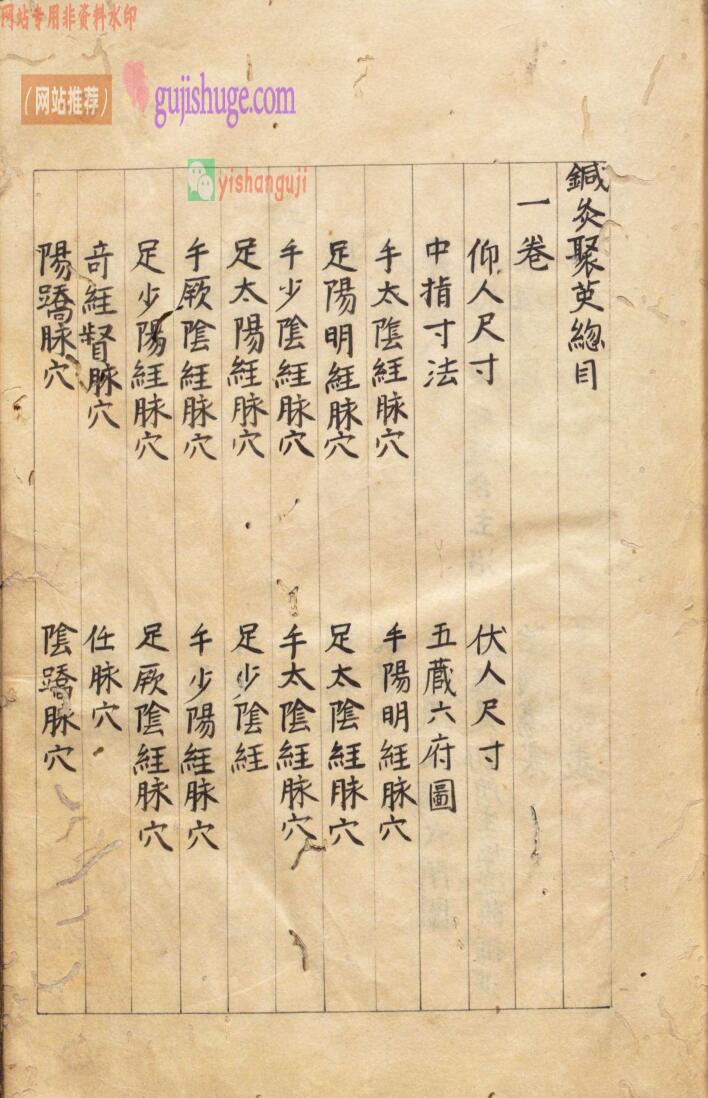 网站专用非资料水印
（网站推荐）
gujishuge.com
yishanguji
鍼灸聚英總目
一卷
仰人尺寸 伏人尺寸
中指寸法 五蔵六府圖
手太陰經脉穴 手陽明經脉穴
足陽明經脉穴 足太陰經脉穴
手少陰經脉穴 手太陰經脉穴
足太陽經脉穴 足少陰經
手厥陰經脉穴 手少陽經脉穴
足少陽經脉穴 足厥陰經脉穴
奇經督脉穴 任脉穴
陽蹻脉穴 陰蹻脉穴